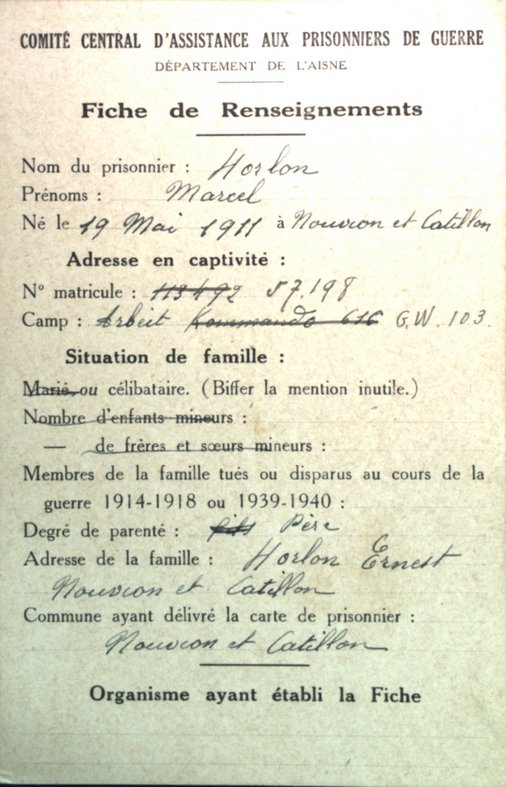 COMITÉ CENTRAL D'ASSISTANCE AUX PRISONNIERS DE GUERRE
DÉPARTEMENT DE L'AISNE
Fiche de Renseignements
Nom du prisonnier : Horlon
Prénoms : Marcel
Né le 19 Mai 1911 à Nouvion et Catillon
Adresse en captivité :
N° matricule : 113492 57.198
Camp : Arbeit Kommando 616 G.W. 103.
Situation de famille :
Marié ou célibataire. (Biffer la mention inutile.)
Nombre d'enfants mineurs :
— de frères et sœurs mineurs :
Membres de la famille tués ou disparus au cours de la
guerre 1914-1918 ou 1939-1940 :
Degré de parenté : fils Père
Adresse de la famille : Horlon Ernest
Nouvion et Catillon
Commune ayant délivré la carte de prisonnier :
Nouvion et Catillon
Organisme ayant établi la Fiche